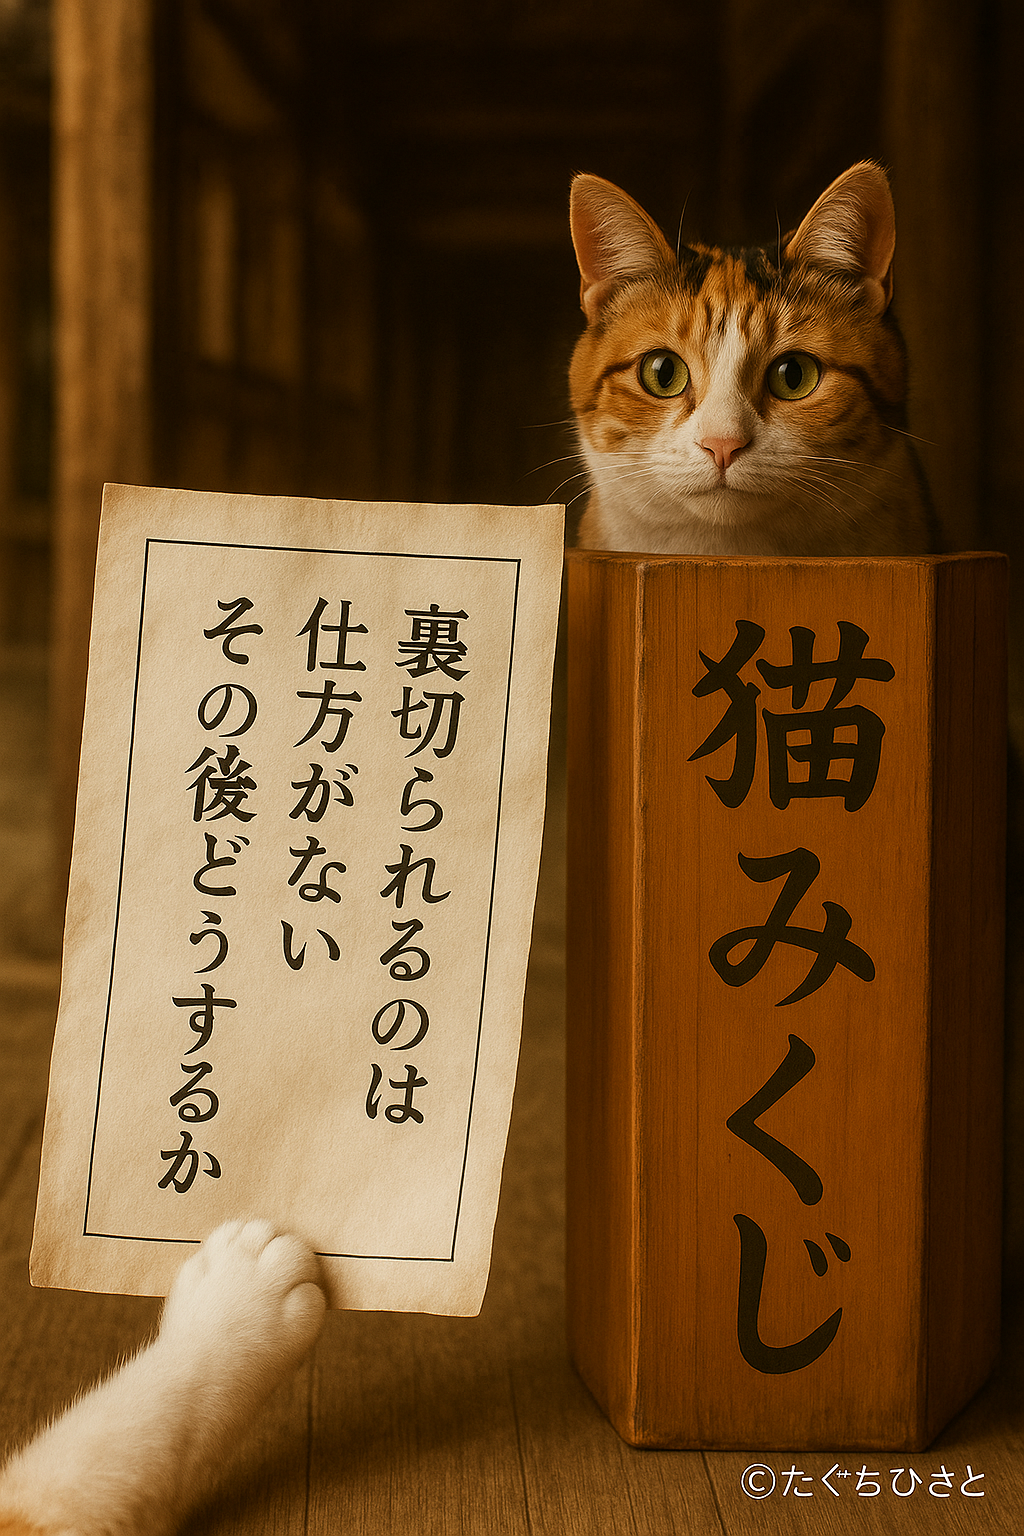 裏切られるのは
仕方がない
その後どうするか
猫みくじ
©たぐちひさと